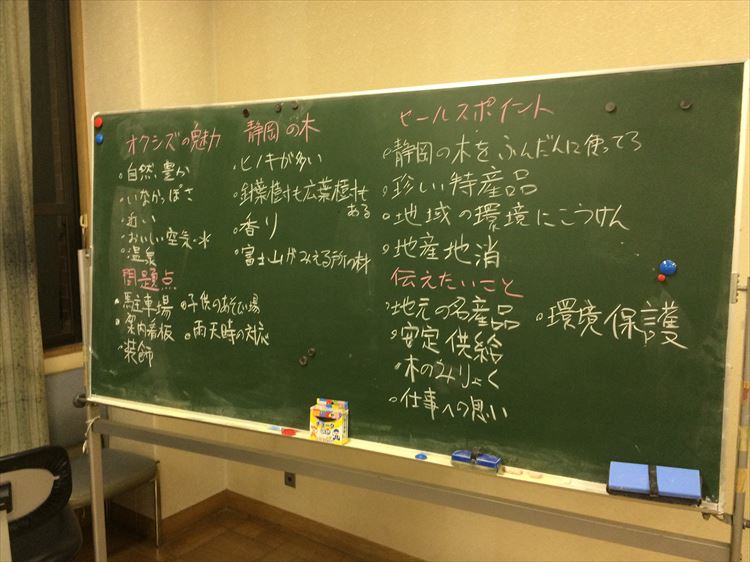 オクシズの魅力
・自然豊か
・いなかっぽさ
・近い
・おいしい空気・水
・温泉
問題点
・駐車場
・案内看板
・装飾
・子供のあそび場
・雨天時の対応
静岡の木
・ヒノキが多い
・針葉樹も広葉樹も
ある
・香り
・富士山がみえる所の材
セールスポイント
・静岡の木をふんだんに使ってる
・珍しい特産品
・地域の環境にこうけん
・地産地消
伝えたいこと
・地元の名産品
・安定供給
・木のみりょく
・仕事への思い
・環境保護